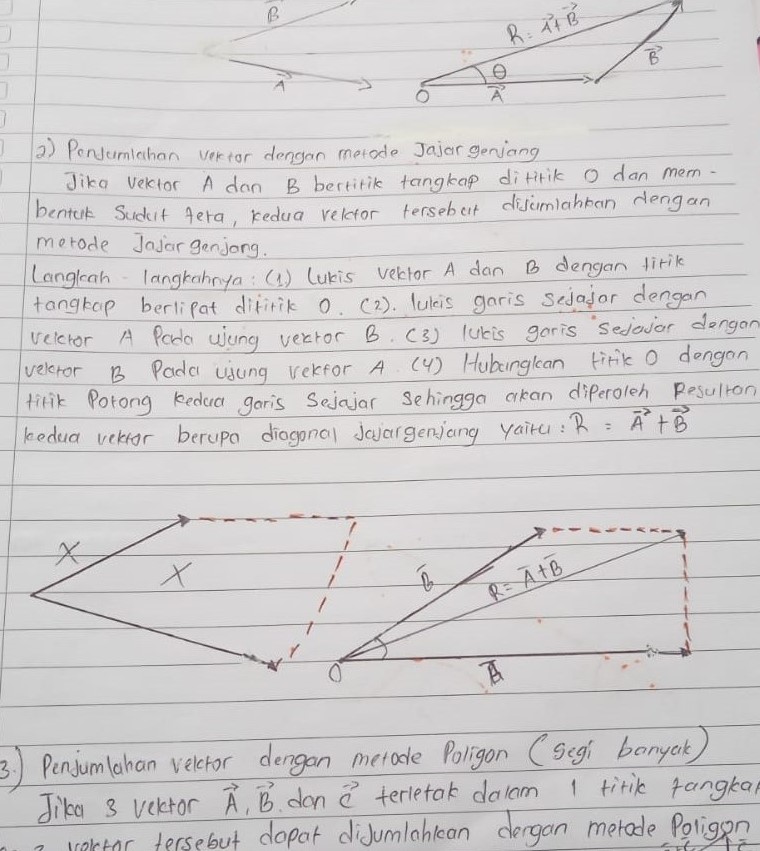 B
A
R = A + B
θ
B
O
A
2) Penjumlahan vektor dengan metode Jajar genjang
Jika vektor A dan B bertitik tangkap dititik O dan mem-
bentuk sudut teta, kedua vektor tersebut dijumlahkan dengan
metode Jajar genjang.
Langkah - langkahnya : (1) Lukis vektor A dan B dengan titik
tangkap berlipat dititik O. (2). lukis garis sejajar dengan
vektor A Pada ujung vektor B. (3) lukis garis sejajar dengan
vektor B Pada ujung vektor A. (4) Hubungkan titik O dengan
titik Potong kedua garis sejajar sehingga akan diperoleh Resultan
kedua vektor berupa diagonal jajargenjang yaitu : R = A + B
X
X
B
R = A + B
O
3.) Penjumlahan vektor dengan metode Poligon (segi banyak)
Jika 3 vektor A, B. dan C terletak dalam 1 titik tangkap
vektor tersebut dapat dijumlahkan dengan metode Poligon